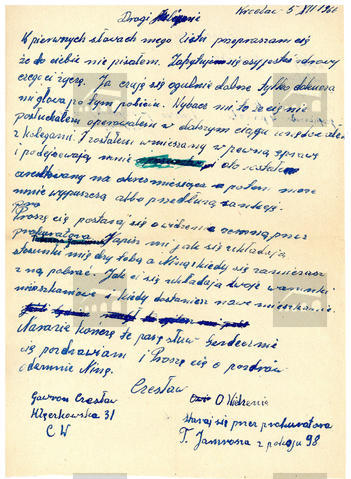 Wrocław 5 VII 19
Drogi
W pierwnych słowach mego listu przepraszam cię
że do ciebie nie pisałem. Zapytuję się czy jesteś zdrowy
czego ci życzę. Ja czuję się ogulnie dobrze tylko dokucza
mi głowa po tym pobiciu. Wybacz mi to że cię nie
posłuchałem
z kolegami. Zostałem wmieszany w pewną sprawę
i podejżewają mnie ale zostałem
aresztowany na okres miesiąca a potem
mnie wypuszczą albo przedłużą sankcję.
Proszę cię postaraj się o widzenie ze mną przez
prokuratora. Napisz mi jak się układają
stosunki między tobą a Niną i kiedy się zamierzasz
z nią pobrać. Jak ci się układają twoje warunki
mieszkaniowe kiedy dostaniesz nowe mieszkanie.
Narazie kończę te parę słów Serdecznie
cię pozdrawiam i Proszę cię o pozdrów
odemnie Ninę.
Czesław
Gawron Czesław
31
C W
O Widzenie
staraj się przez prokuratora
T. z pokoju 98